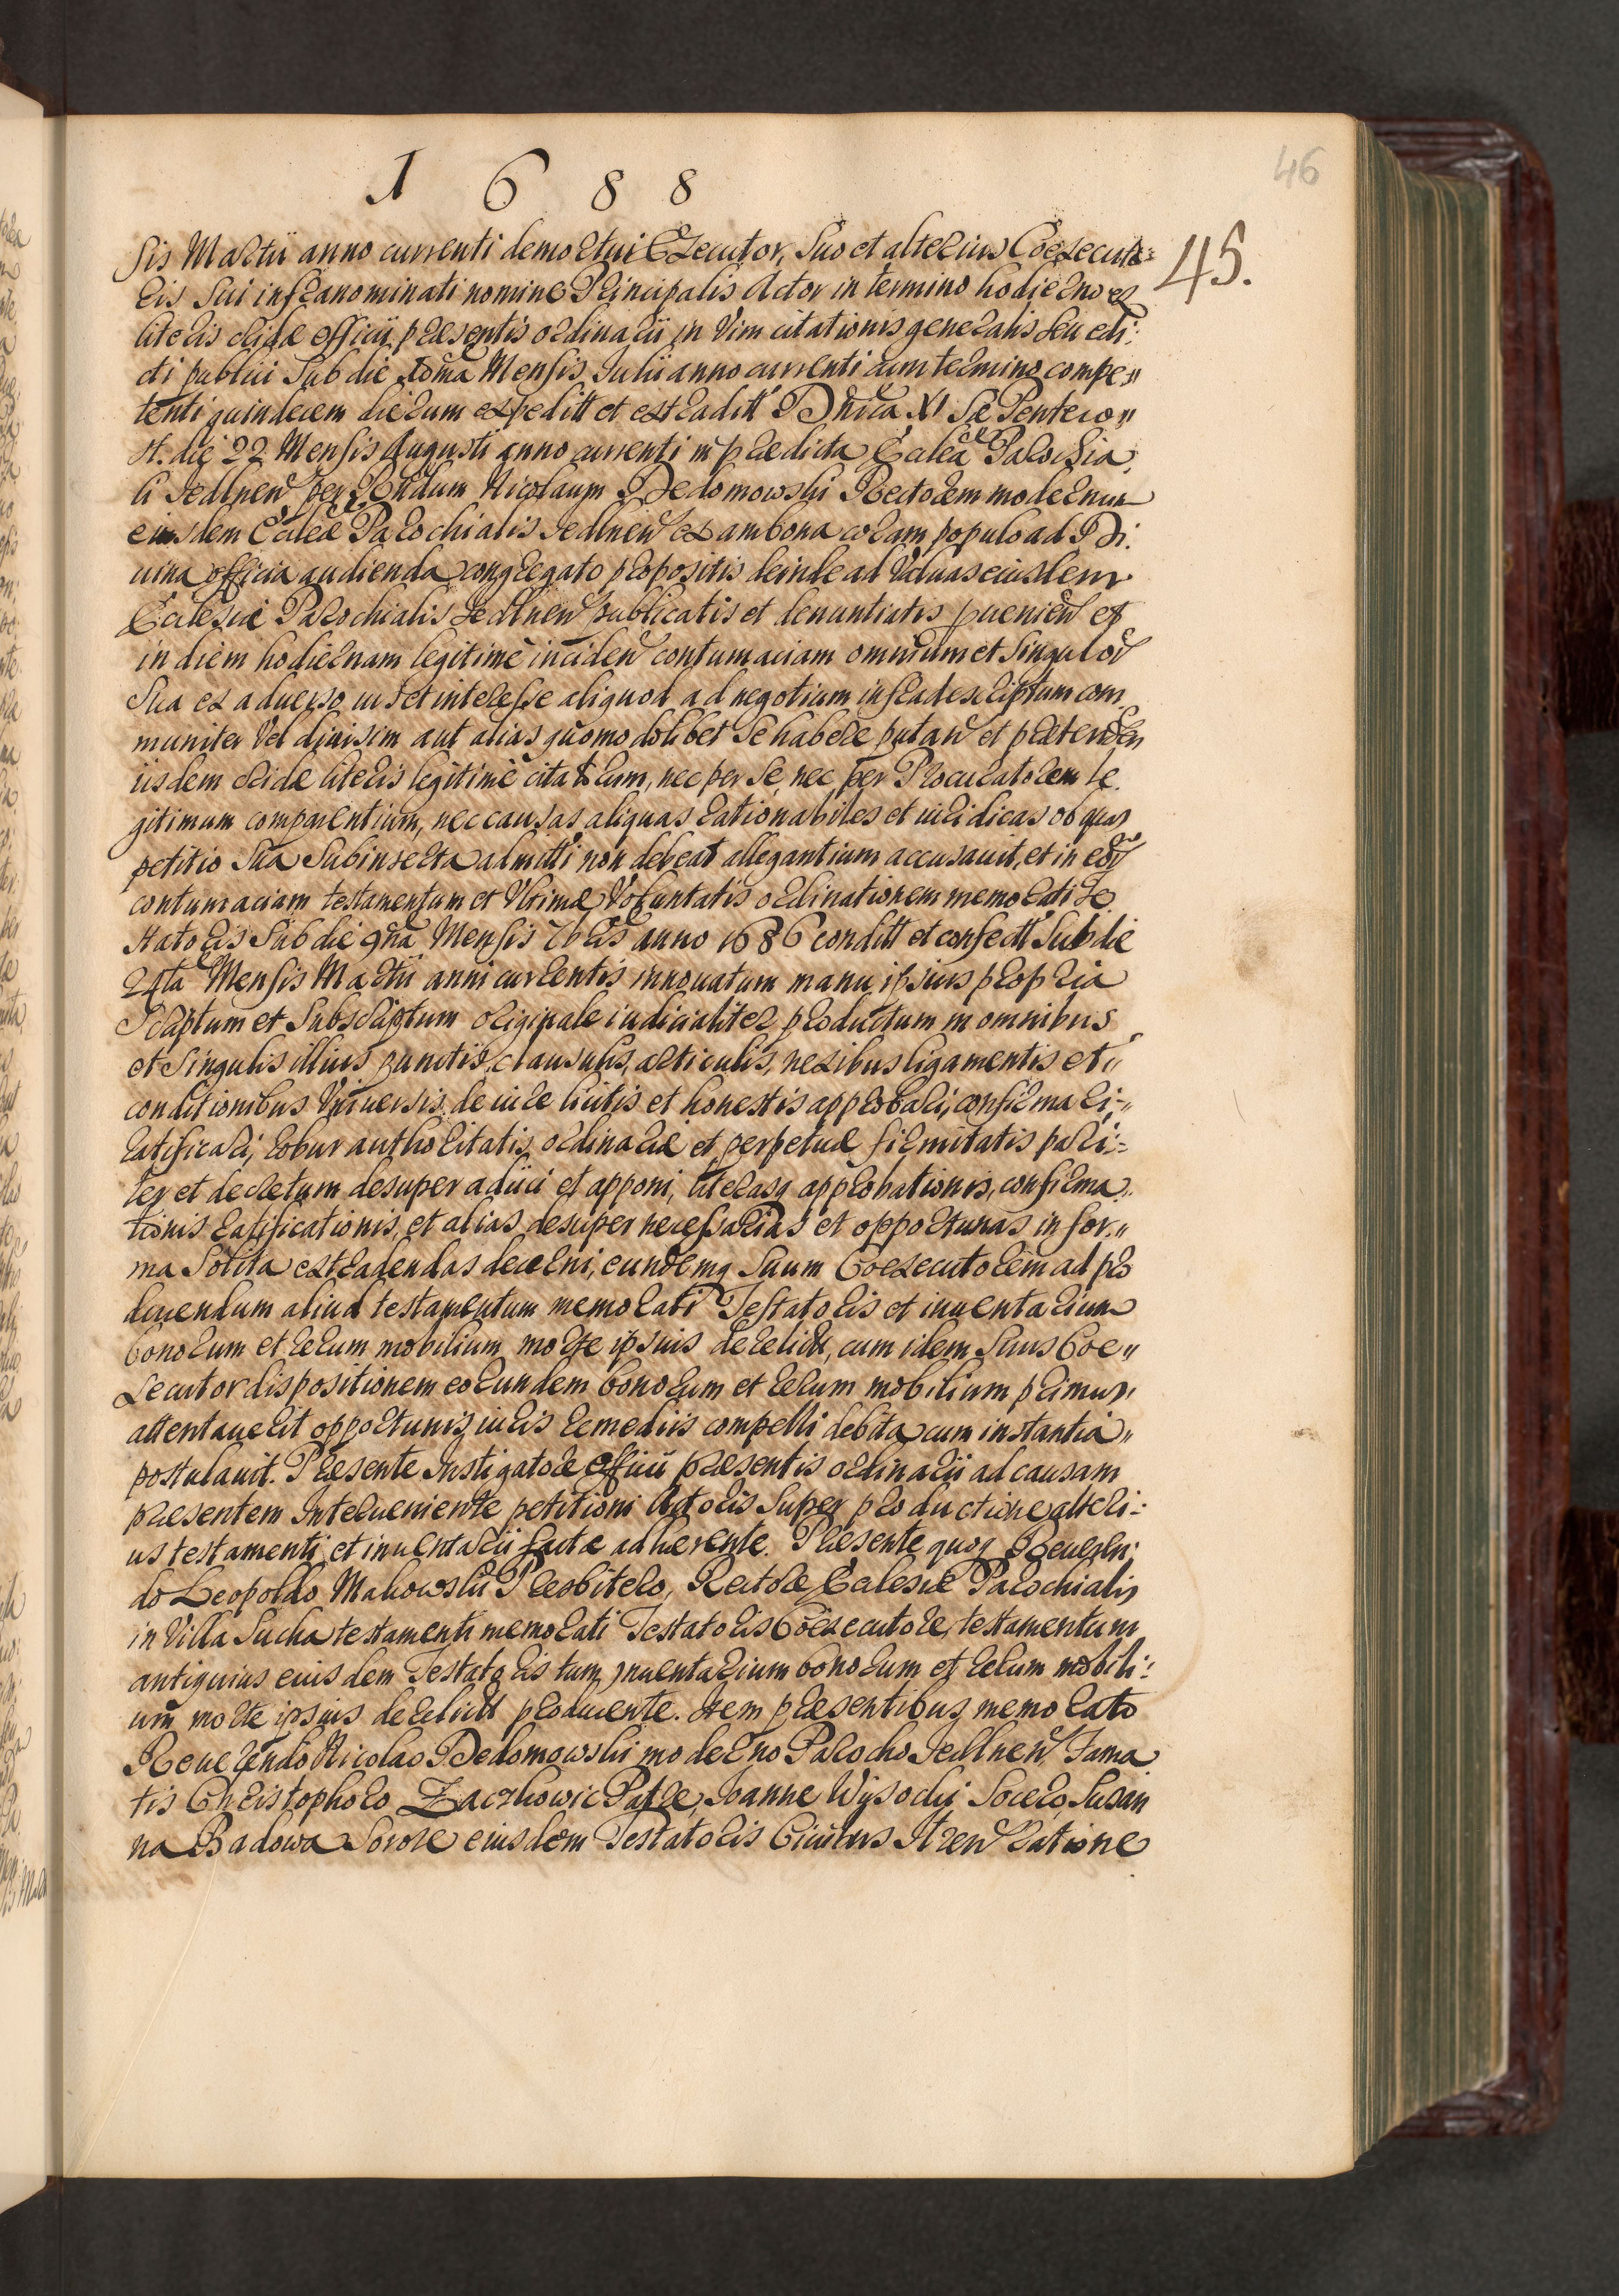 1 6 8 8
46
45.
sis Martii anno currenti demortui Executor, Suo et alterius Coexecuto=
ris Sui infranominati nomine Principalis Actor in termino hodierno ex
literis cridæ officii præsentis ordinarii in Vim citationis generalis seu edi:
cti publici Sub die Mensis Julii anno currenti cum termino compe„
tenti quindecem dierum expeditt et extraditt Dnica XI Pentecos„
st. die 22 Mensis Augusti anno currenti in prædicta Eccleã Parochia
li Jedlnen per Rndum Nicolaum Dedomowski Rectorem modernum
eiusdem Eccleæ Parochialis Jedlnen ex ambona coram populo ad Di:
uina officia audienda congregato propositis deinde ad Valuas eiusdem
Ecclesiæ Parochialis Jedlnen publicatis et denuntiatis puenien et
in diem hodiernam legitimè inciden contumaciam omnium et Singulor
Sua ex aduerso ius et interesse aliquod ad negotium infradescriptum com
muniter Vel diuisim aut alias quomodolibet Se habere putan et prætenden
iisdem cridæ literis legitimè citatorum, nec per Se, nec per Procuratorem le
gitimum comparentium, nec causas aliquas rationabiles et iuridicas ob quas
petitio Sua Subinserta admitti non debeat allegantium accusauit, et in eor
contumaciam testamentum et Vltimæ Voluntatis ordinationem memorati Te
statoris Sub die 9na Mensis 7bris anno 1686 conditt et confectt Sub die
24ta Mensis Martii anni currentis innouatum manu ipsius propria
Scriptum et Subscriptum originale iudicialiter productum in omnibus
et Singulis illius punctis, clausulis, articulis, nexibus ligamentis et„
conditionibus Vniuersis de iure licitis et honestis approbari, confirmari„
ratificari, robur authoritatis ordinariæ et perpetuæ firmitatis pari:
ter et decretum desuper adiici et apponi, literasq approbationis, confirma„
tionis ratificationis, et alias desuper necessarias et opportunas in for„
ma Solita extradendas decerni, eundemq Suum Coexecutorem ad pro
ducendum aliud testamentum memorati Testatoris et inuentarium
bonorum et rerum mobilium morte ipsius derelictt, cum idem Suus Coe„
xecutor dispositionem eorundem bonorum et rerum mobilium primus
attentauerit opportunis iuris remediis compelli debita cum instantia„
postulauit. Præsente Instigatore officii præsentis ordinarii ad causam
præsentem Interueniente petitioni Actoris Super productione alteri:
us testamenti et inuentarii factæ adhærente. Præsente quoq Reueren:
do Leopoldo Makowski Præsbitero, Rectore Ecclesiæ Parochialis
in Villa Sucha testamenti memorati Testatoris Coexecutore, testamentum
antiquius eiusdem Testatoris tum inuentarium bonorum et rerum mobili:
um morte ipsius derelictt producente. Item præsentibus memorato
Reuerendo Nicolao Dedomowski moderno Parocho Jedlnen Fama
tis Christophoro Zaczkowic Patre, Joanne Wysocki Socero, Susan
na Badowa Sorore eiusdem Testatoris Ciuibus ratione